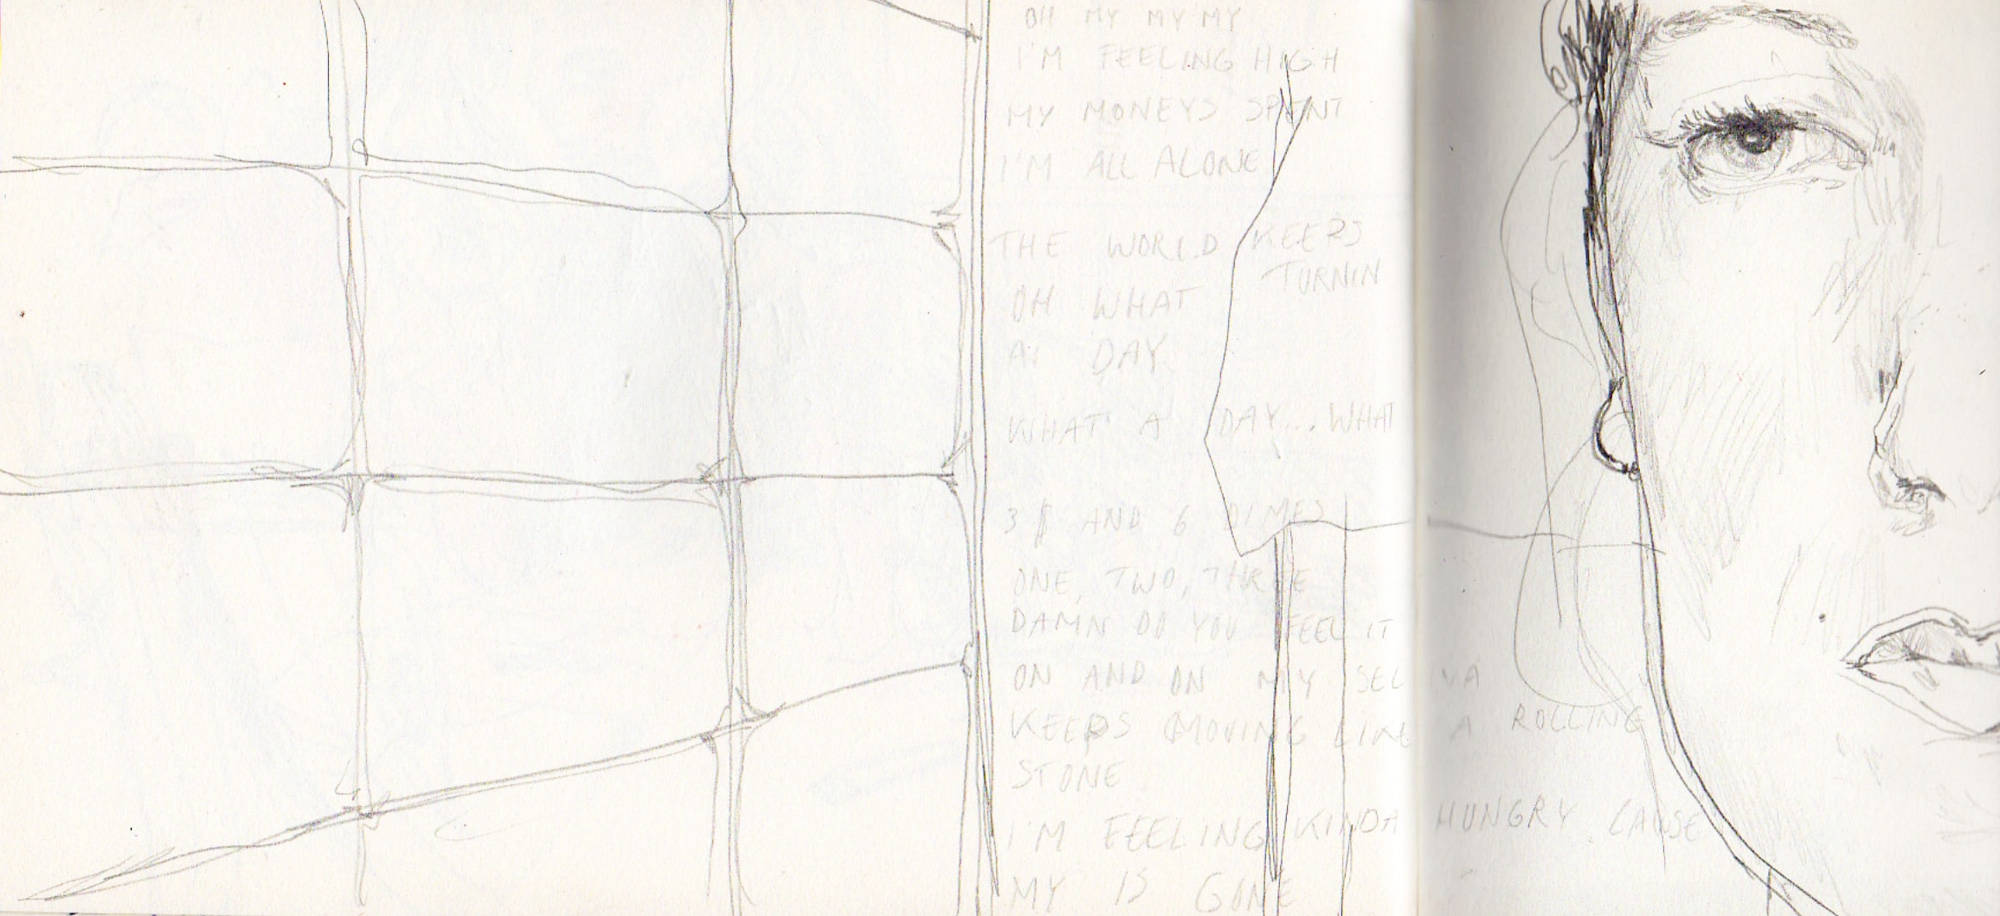 OH MY MY MY
I'M FEELING HIGH
MY MONEYS SPENT
I'M ALL ALONE
THE WORLD KEEPS
TURNIN
OH WHAT
A DAY
WHAT A DAY... WHAT
3 $ AND 6 DIMES
ONE, TWO, THREE
DAMN DO YOU FEEL IT
ON AND ON MY
KEEPS MOVING LIKE A ROLLING
STONE
I'M FEELING KINDA HUNGRY CAUSE
MY IS GONE